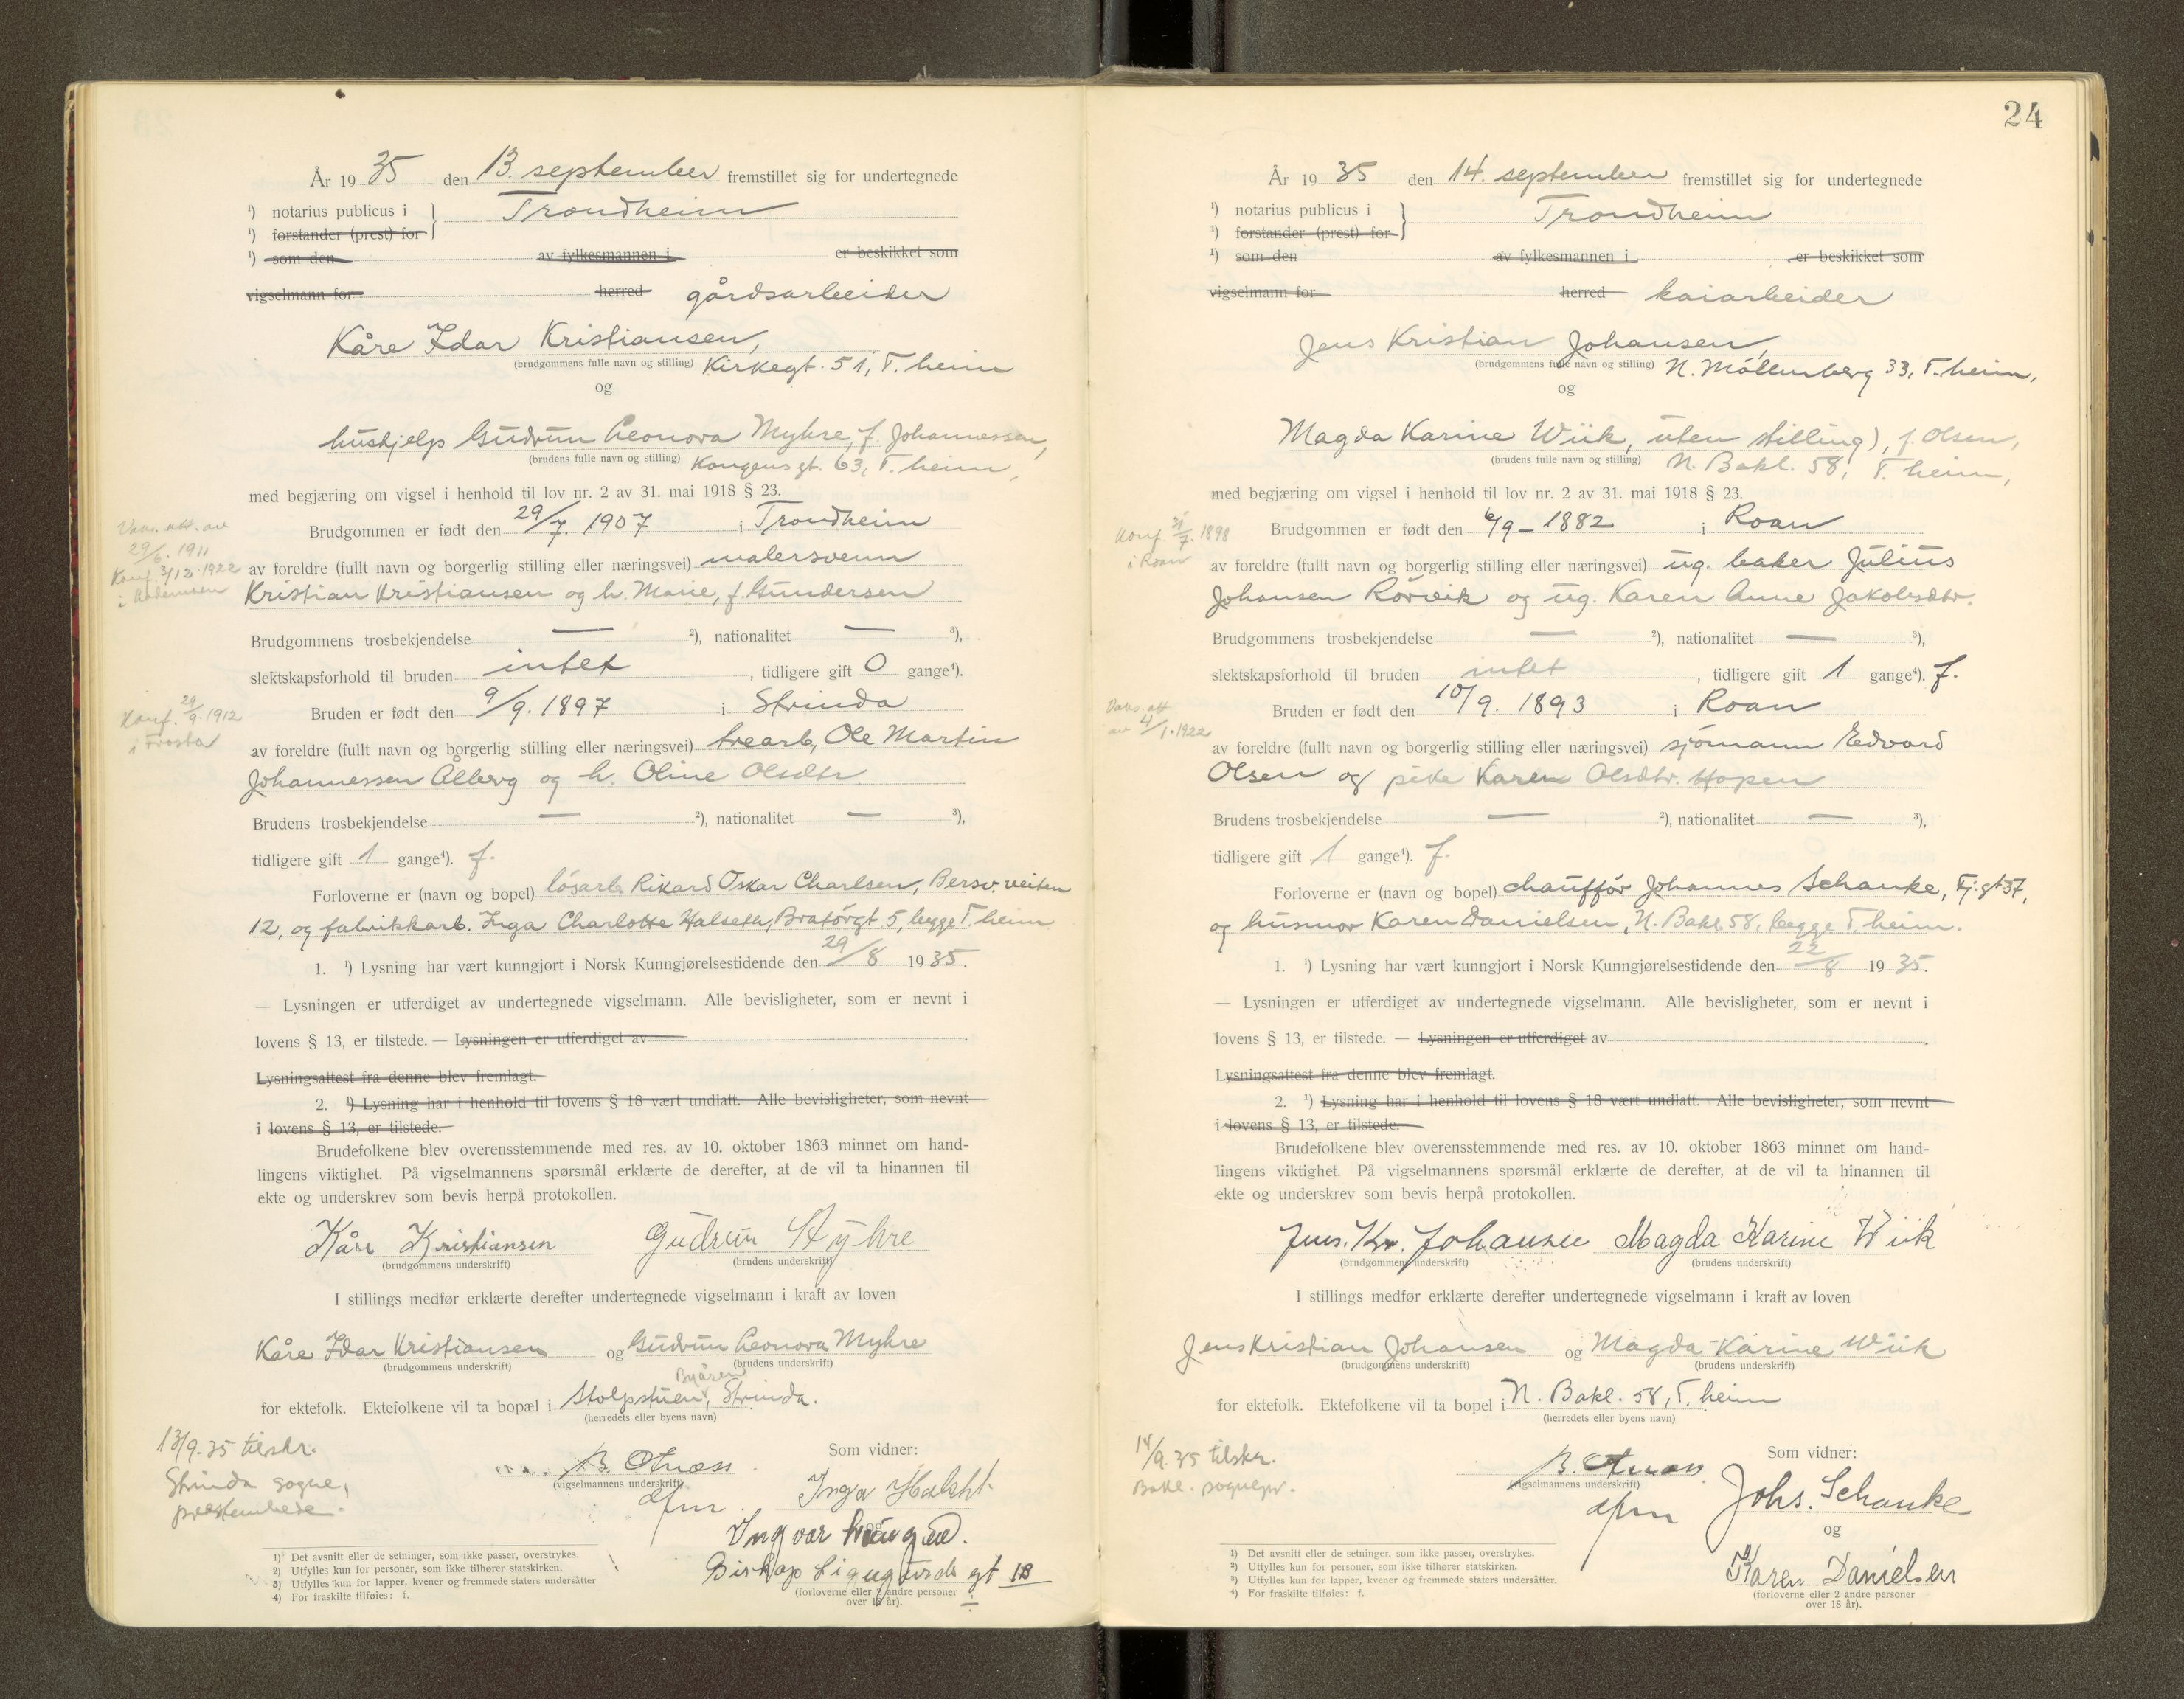 År 19 35 den 13. september fremstillet sig for undertegnede
¹) notarius publicus i } Trondheim
¹) forstander (prest) for
¹) som den av fylkesmannen i er beskikket som
vigselmann for herred gårdsarbeider
Kåre Idar Kristiansen,
(brudgommens fulle navn og stilling) Kirkegt. 51, T.heim
og
hushjelp Gudrun Leonora Myhre, f. Johannessen,
(brudens fulle navn og stilling) Kongens gt. 63, T.heim,
med begjæring om vigsel i henhold til lov nr. 2 av 31. mai 1918 § 23.
Vaks. att. av
29/6. 1911
Konf. 3/12. 1922
i
Brudgommen er født den 29/7. 1907 i Trondheim
av foreldre (fullt navn og borgerlig stilling eller næringsvei) malersvenn
Kristian Kristiansen og h. Marie, f. Gundersen
Brudgommens trosbekjendelse — ²), nationalitet — ³),
slektskapsforhold til bruden intet, tidligere gift 0 gange⁴).
Konf. 29/9. 1912
i Frosta
Bruden er født den 9/9. 1897 i Strinda
av foreldre (fullt navn og borgerlig stilling eller næringsvei) trearb. Ole Martin
Johannessen Ålberg og h. Oline Olsdtr.
Brudens trosbekjendelse — ²), nationalitet — ³),
tidligere gift 1 gange⁴). f.
Forloverne er (navn og bopel) løsarb. Rikard Oskar Charlsen, Bersv. veiten
12, og fabrikkarb. Inga Charlotte Halseth, Bratørgt. 5, begge T.heim
1. ¹) Lysning har vært kunngjort i Norsk Kunngjørelsestidende den 29/8 19 35.
— Lysningen er utferdiget av undertegnede vigselmann. Alle bevisligheter, som er nevnt i
lovens § 13, er tilstede. — Lysningen er utferdiget av
Lysningsattest fra denne blev fremlagt.
2. ¹) Lysning har i henhold til lovens § 18 vært undlatt. Alle bevisligheter, som nevnt
i lovens § 13, er tilstede.
Brudefolkene blev overensstemmende med res. av 10. oktober 1863 minnet om hand-
lingens viktighet. På vigselmannens spørsmål erklærte de derefter, at de vil ta hinannen til
ekte og underskrev som bevis herpå protokollen.
Kåre Kristiansen Gudrun Myhre
(brudgommens underskrift) (brudens underskrift)
I stillings medfør erklærte derefter undertegnede vigselmann i kraft av loven
Kåre Idar Kristiansen og Gudrun Leonora Myhre
(brudgommens underskrift) (brudens underskrift)
Byåsen
for ektefolk. Ektefolkene vil ta bopæl i Stolpstuen, Strinda.
(herredets eller byens navn)
13/9.35 tilskr.
Strinda sogne,
presteembede.
Som vidner:
(vigselmannens underskrift)
Inga Halseth
og
Ingvar
Biskop Sigurds gt 1B
(forloverne eller 2 andre personer
over 18 år).
1) Det avsnitt eller de setninger, som ikke passer, overstrykes.
2) Utfylles kun for personer, som ikke tilhører statskirken.
3) Utfylles kun for lapper, kvener og fremmede staters undersåtter
4) For fraskilte tilføies: f.
24
År 19 35 den 14. september fremstillet sig for undertegnede
¹) notarius publicus i } Trondheim
¹) forstander (prest) for
¹) som den av fylkesmannen i er beskikket som
vigselmann for herred kaiarbeider
Jens Kristian Johansen,
(brudgommens fulle navn og stilling) N. Möllenberg 33, T.heim,
og
Magda Karine Wiik, uten stilling), f. Olsen,
(brudens fulle navn og stilling) N. Bakl. 58, T.heim,
med begjæring om vigsel i henhold til lov nr. 2 av 31. mai 1918 § 23.
Konf. 31/7. 1898
i Roan
Brudgommen er født den 6/9 - 1882 i Roan
av foreldre (fullt navn og borgerlig stilling eller næringsvei) ug. baker Julius
Johansen Rörvik og ug. Karen Anne Jakobsdtr.
Brudgommens trosbekjendelse — ²), nationalitet — ³),
slektskapsforhold til bruden intet, tidligere gift 1 gange⁴). f.
Vaks. att
av 4/1. 1922
Bruden er født den 10/9. 1893 i Roan
av foreldre (fullt navn og borgerlig stilling eller næringsvei) sjömann Edvard
Olsen og pike Karen Olsdtr. Hopen
Brudens trosbekjendelse — ²), nationalitet — ³),
tidligere gift 1 gange⁴). f.
Forloverne er (navn og bopel) chauffør Johannes Schanke, Fj.gt 37,
og husmor Karen Danielsen, N. Bakl. 58, begge T.heim.
1. ¹) Lysning har vært kunngjort i Norsk Kunngjørelsestidende den 22/8 19 35.
— Lysningen er utferdiget av undertegnede vigselmann. Alle bevisligheter, som er nevnt i
lovens § 13, er tilstede. — Lysningen er utferdiget av
Lysningsattest fra denne blev fremlagt.
2. ¹) Lysning har i henhold til lovens § 18 vært undlatt. Alle bevisligheter, som nevnt
i lovens § 13, er tilstede.
Brudefolkene blev overensstemmende med res. av 10. oktober 1863 minnet om hand-
lingens viktighet. På vigselmannens spørsmål erklærte de derefter, at de vil ta hinannen til
ekte og underskrev som bevis herpå protokollen.
Jens. Kr. Johansen Magda Karine Wiik
(brudgommens underskrift) (brudens underskrift)
I stillings medfør erklærte derefter undertegnede vigselmann i kraft av loven
Jens Kristian Johansen og Magda Karine Wiik
(brudgommens underskrift) (brudens underskrift)
for ektefolk. Ektefolkene vil ta bopel i N. Bakl. 58, T.heim
(herredets eller byens navn)
14/9.35 tilskr.
Bakl. sognepr.
Som vidner:
(vigselmannens underskrift)
Johs. Schanke
og
Karen Danielsen
(forloverne eller 2 andre personer
over 18 år).
1) Det avsnitt eller de setninger, som ikke passer, overstrykes.
2) Utfylles kun for personer, som ikke tilhører statskirken.
3) Utfylles kun for lapper, kvener og fremmede staters undersåtter.
4) For fraskilte tilføies: f.